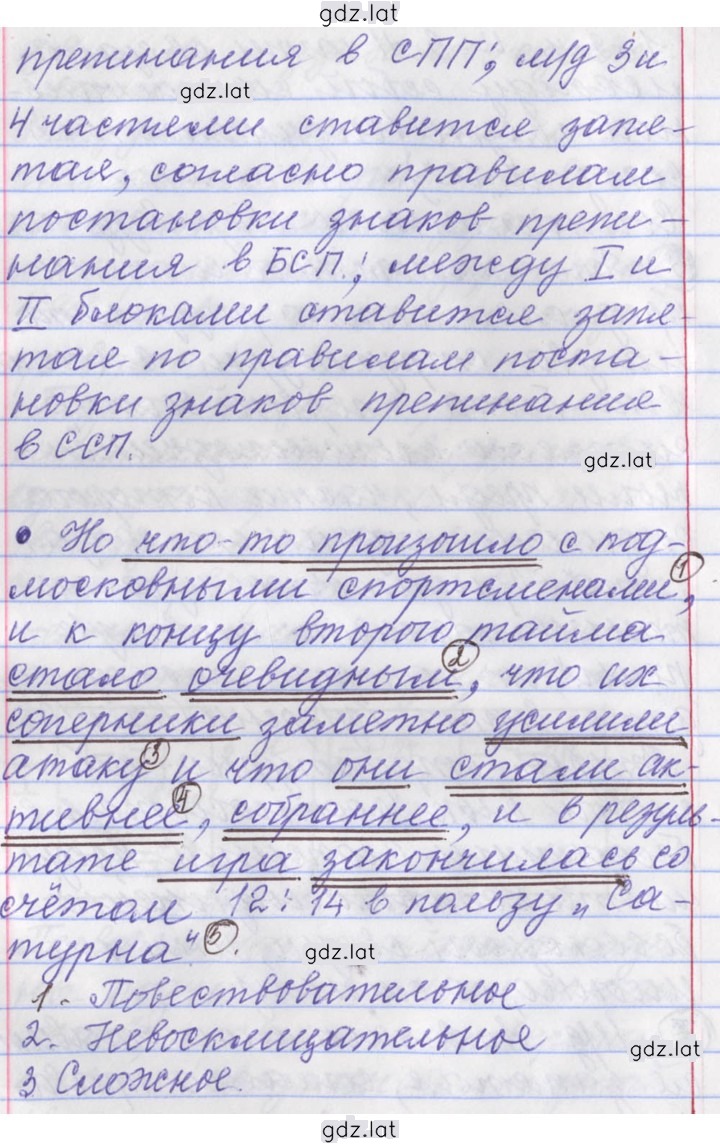 gdz.lat
препинания в СПП; м/д 3 и
gdz.lat
4 частями ставится запя-
тая, согласно правилам
постановки знаков препи-
нания в БСП.; между I и
II блоками ставится запя-
тая по правилам поста-
новки знаков препинания
в ССП.
gdz.lat
• Но что-то произошло с под-
московными спортсменами ①,
и к концу второго тайма
стало очевидным ②, что их
соперники заметно усилили
атаку ③ и что они стали ак-
тивнее ④, собраннее, и в резуль-
тате игра закончилась со
счётом 12:14 в пользу „Са-
турна“ ⑤.
gdz.lat
1. Повествовательное
2. Невосклицательное
gdz.lat
3 Сложное.
gdz.lat